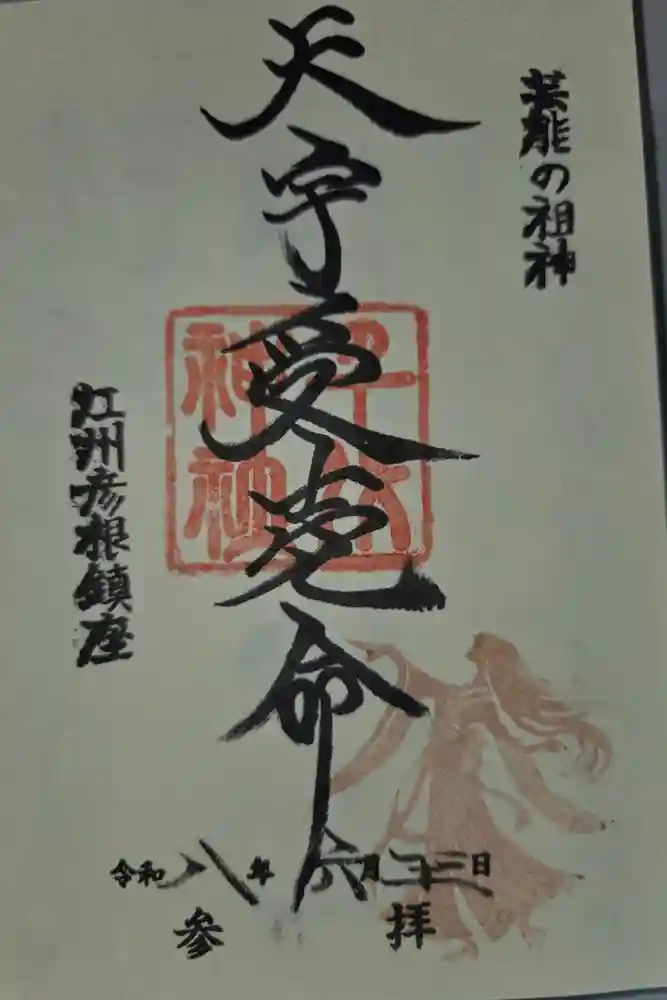 芸能の祖神
天宇受売命
千代
神社
江州彦根鎮座
令和八年六月二十三日
参拝